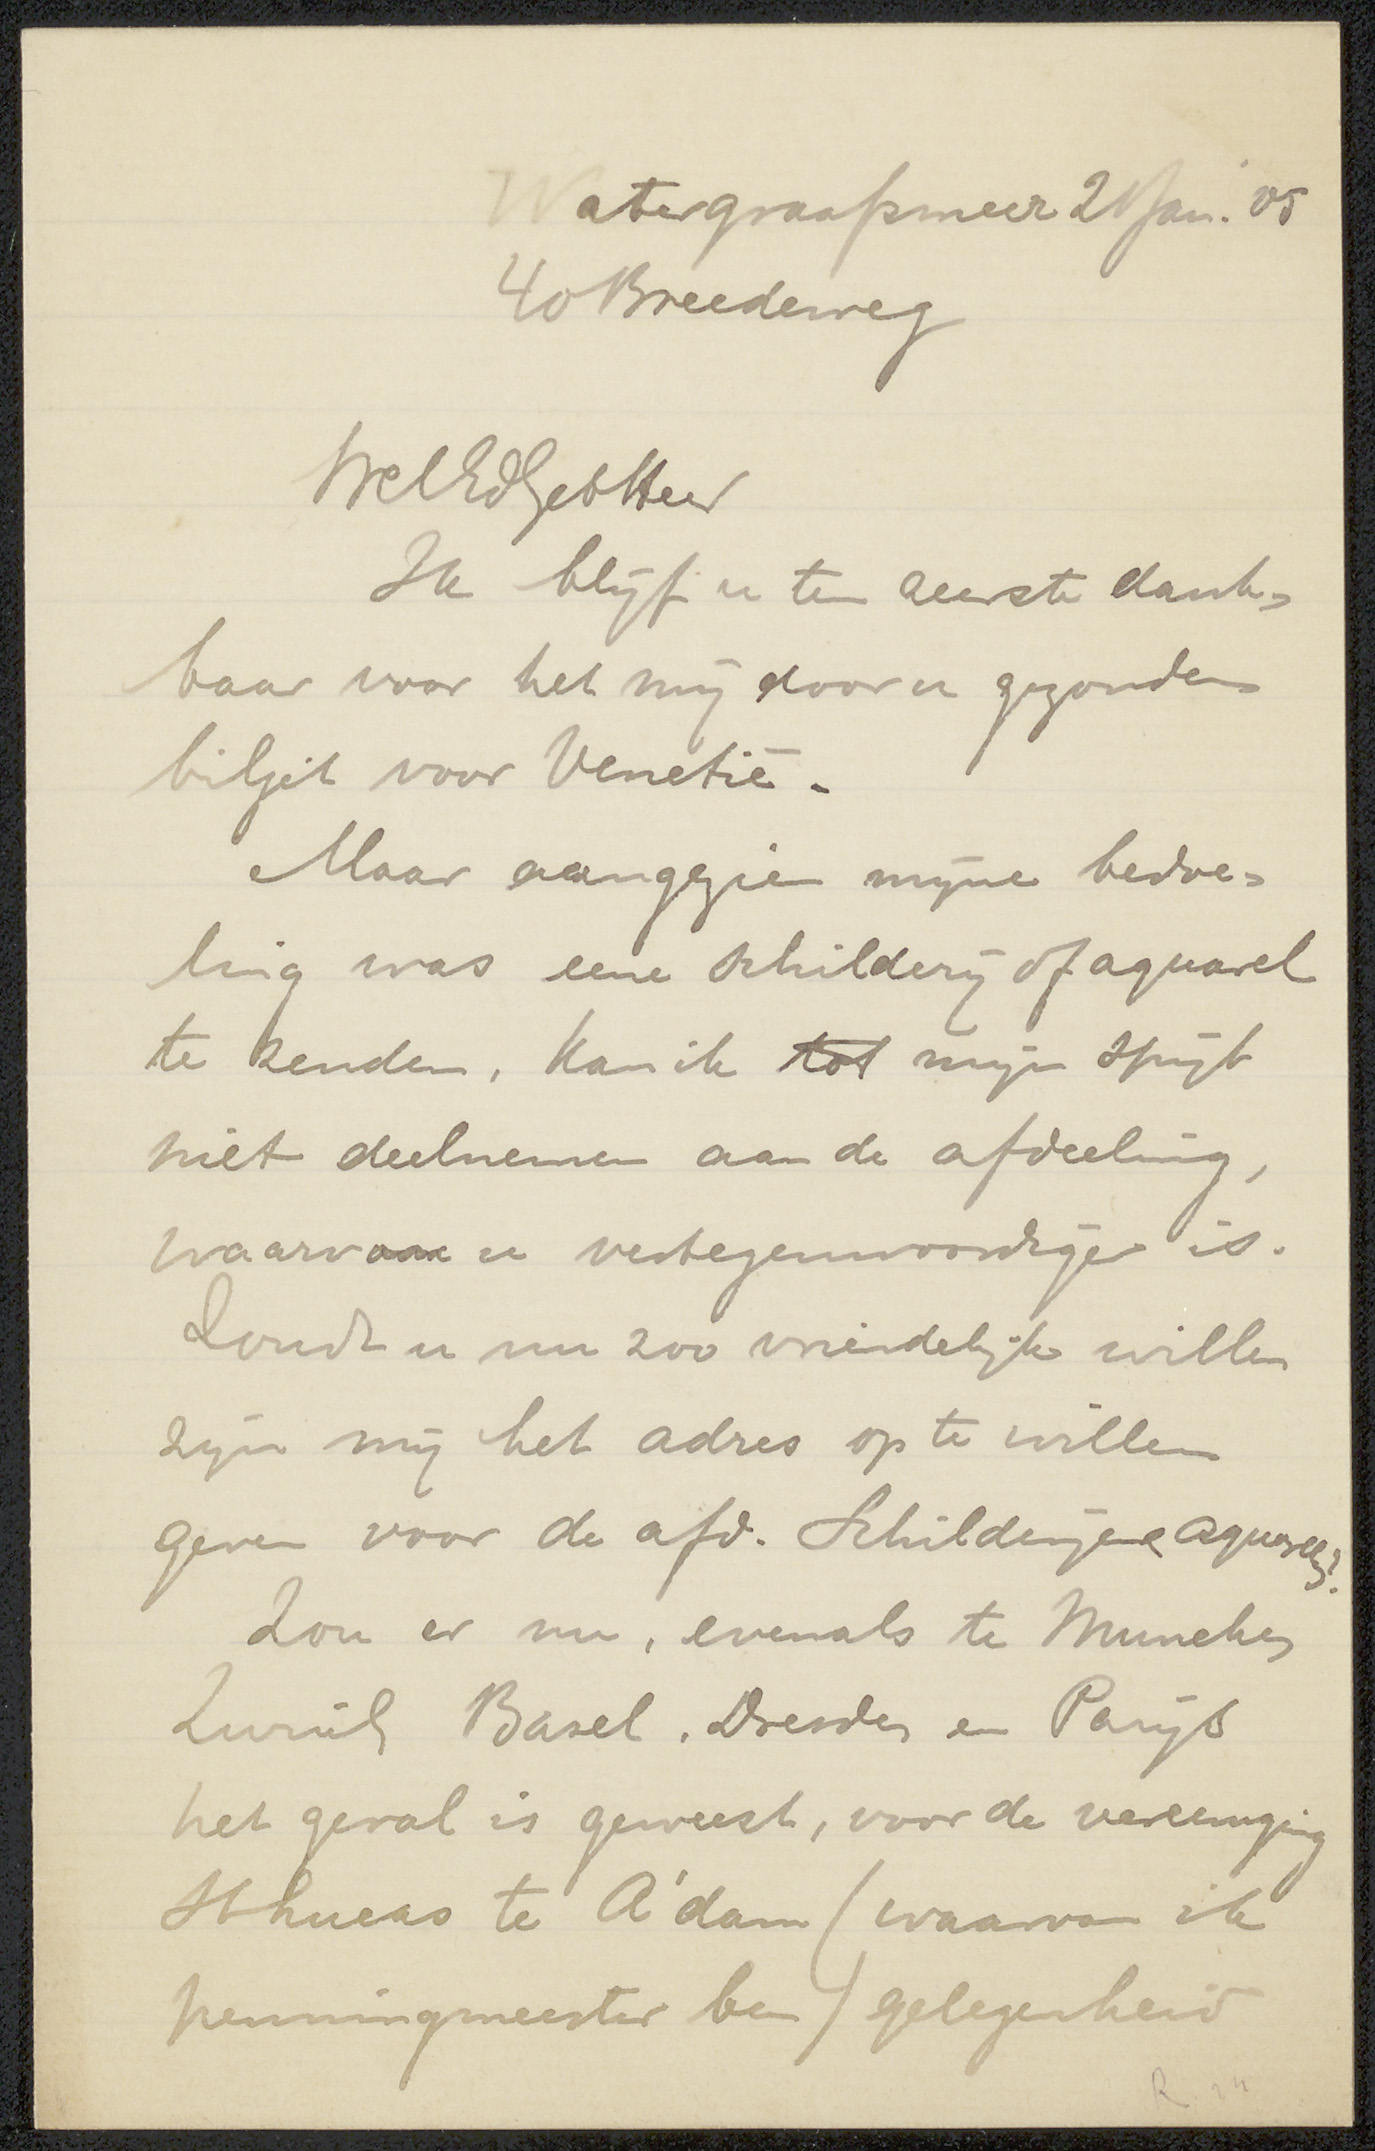 Watergraafsmeer 21 Jan. '05
40 Breedeweg
WelEdGeb Heer
Ik blijf u ten zeerste dank-
baar voor het mij door u gezonden
biljet voor Venetië.
Maar aangezien mijne bedoe-
ling was eene schilderij of aquarel
te zenden, kan ik tot mijn spijt
niet deelnemen aan de afdeeling,
waarvan u vertegenwoordiger is.
Zoudt u nu zoo vriendelijk willen
zijn mij het adres op te willen
geven voor de afd. Schilderijen & aquarellen?
Zou er nu, evenals te Munchen
Zurich Basel, Dresden en Parijs
het geval is geweest, voor de vereeniging
St Lucas te A'dam (waarvan ik
penningmeester ben) gelegenheid